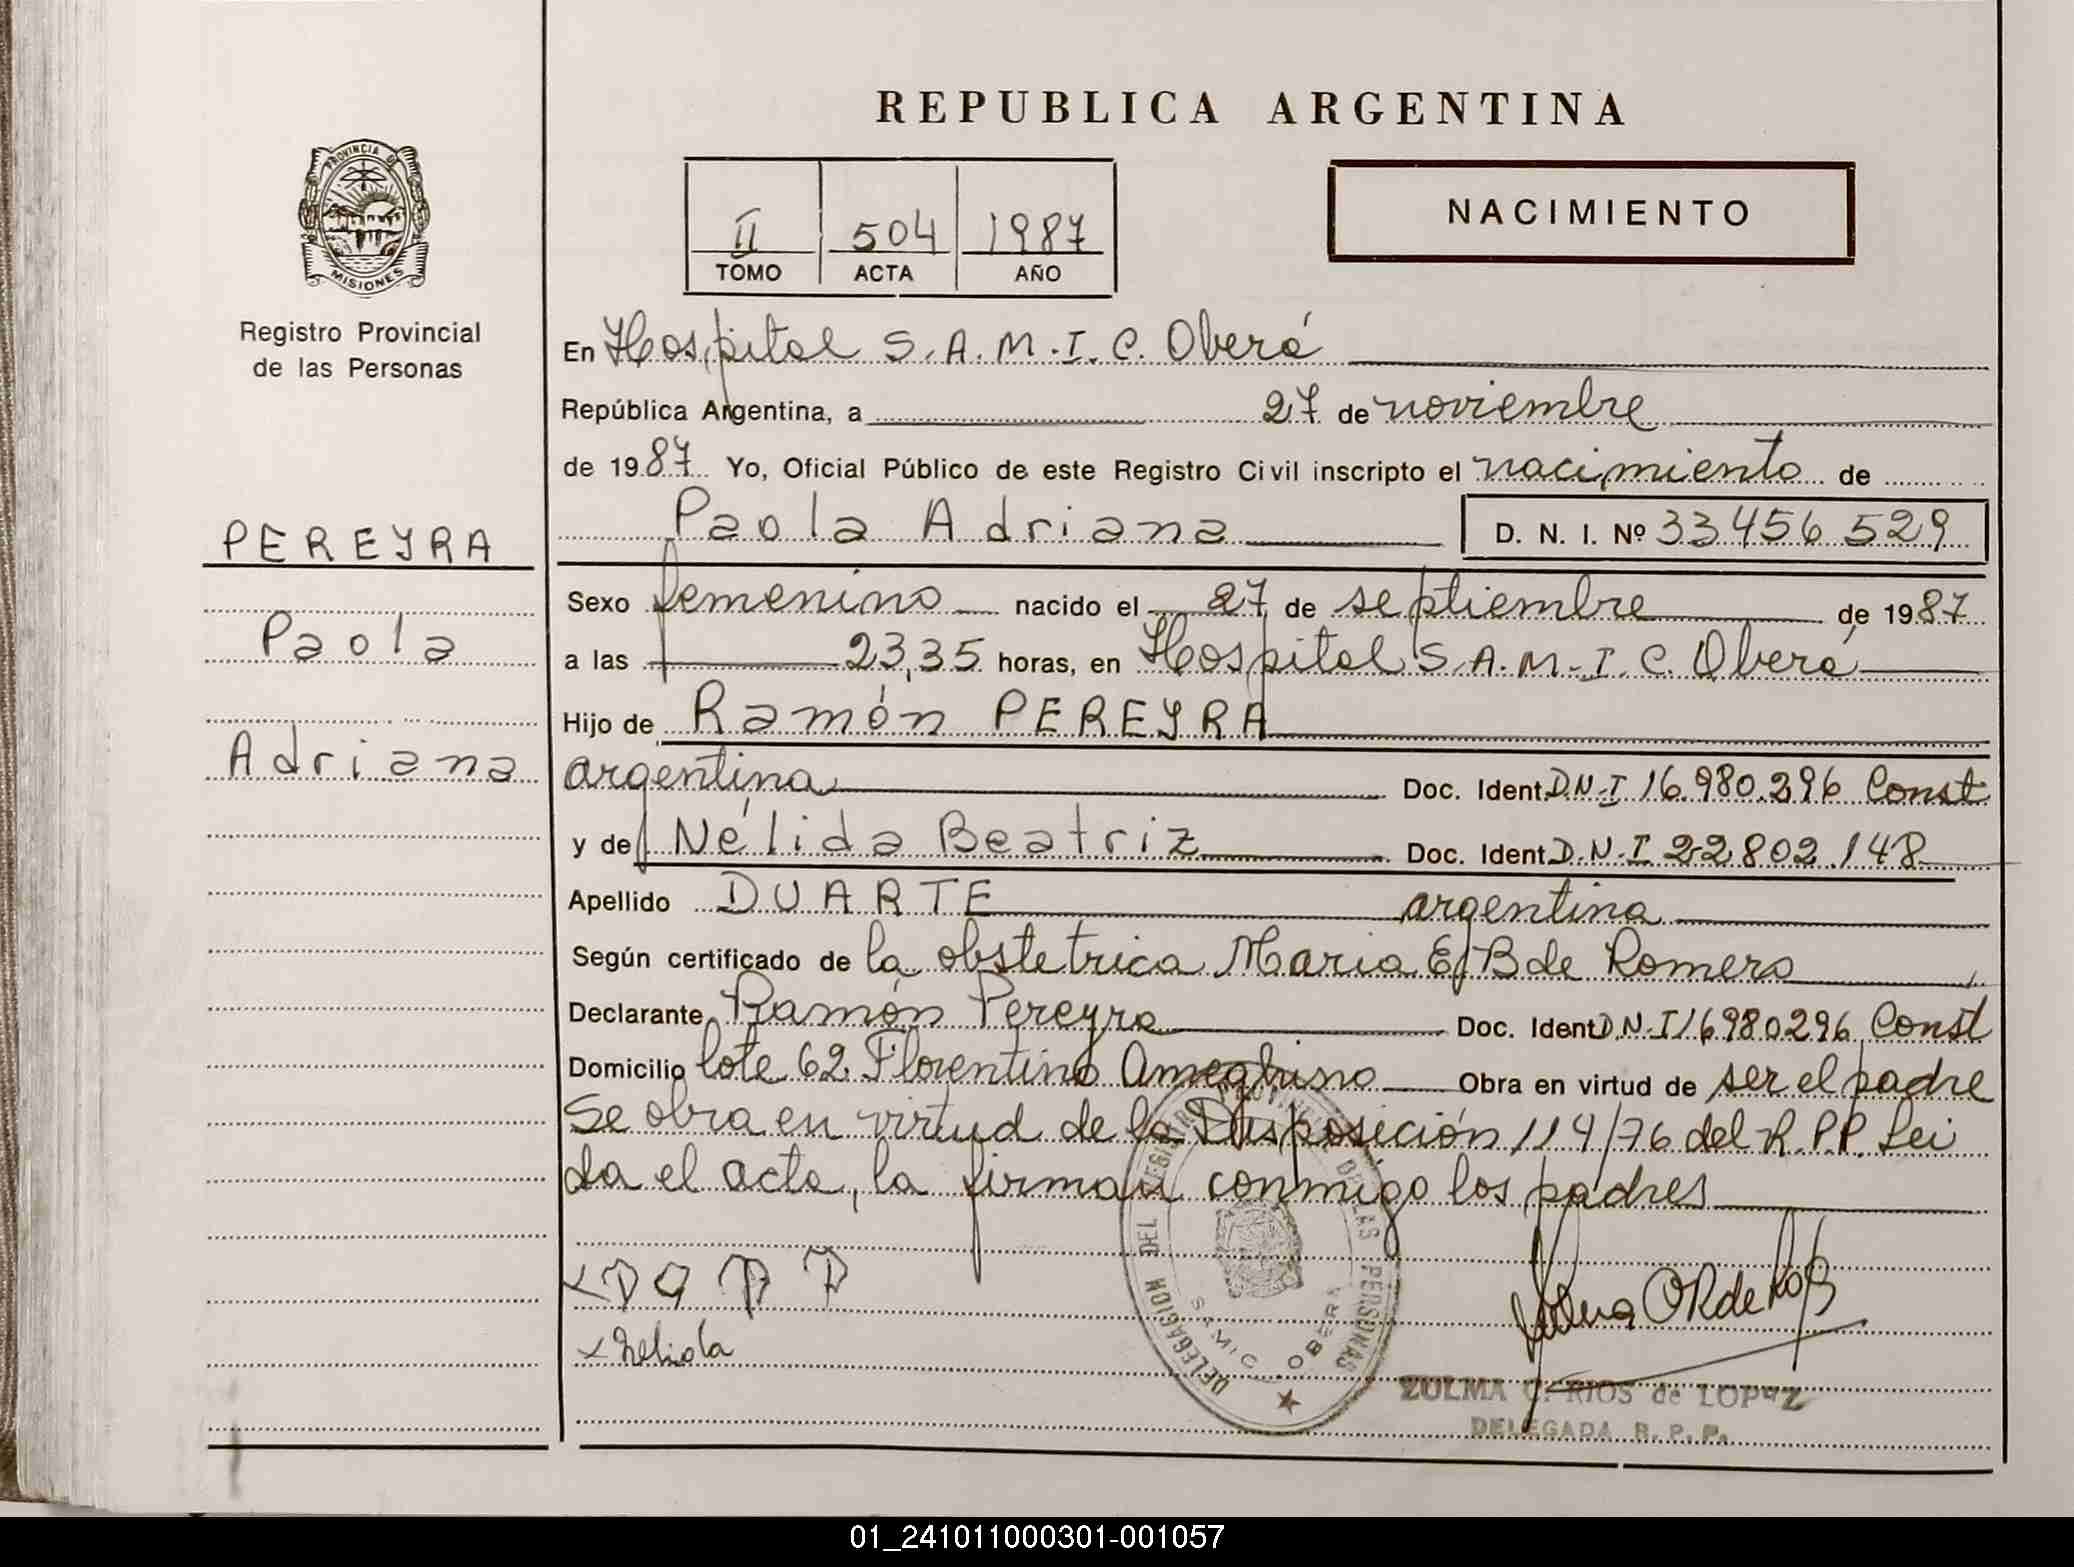 REPUBLICA ARGENTINA
PROVINCIA DE
MISIONES
Registro Provincial
de las Personas
II 504 1987
TOMO ACTA AÑO
NACIMIENTO
En Hospital S.A.M.I.C. Oberá
República Argentina, a 27 de noviembre
de 1987 Yo, Oficial Público de este Registro Civil inscripto el nacimiento de
Paola Adriana D. N. I. Nº 33456529
PEREYRA
Paola
Adriana
Sexo femenino nacido el 27 de septiembre de 1987
a las 23,35 horas, en Hospital S.A.M.I.C. Oberá
Hijo de Ramón PEREYRA
argentina Doc. Ident. D.N.I 16.980.296 Const
y de Nélida Beatriz Doc. Ident. D.N.I 22.802.148
Apellido DUARTE argentina
Según certificado de la obstetrica Maria E. B de Romero
Declarante Ramón Pereyra Doc. Ident. D.N.I 16980296 Const
Domicilio lote 62 Florentino Ameghino Obra en virtud de ser el padre
Se obra en virtud de la Disposición 114/76 del R.P.P. Lei
da el acta, la firman conmigo los padres
DELEGACION DEL REGISTRO PROVINCIAL DE LAS PERSONAS
SAMIC OBERA
ZULMA C. RIOS de LOPEZ
DELEGADA R. P. P.
01_241011000301-001057